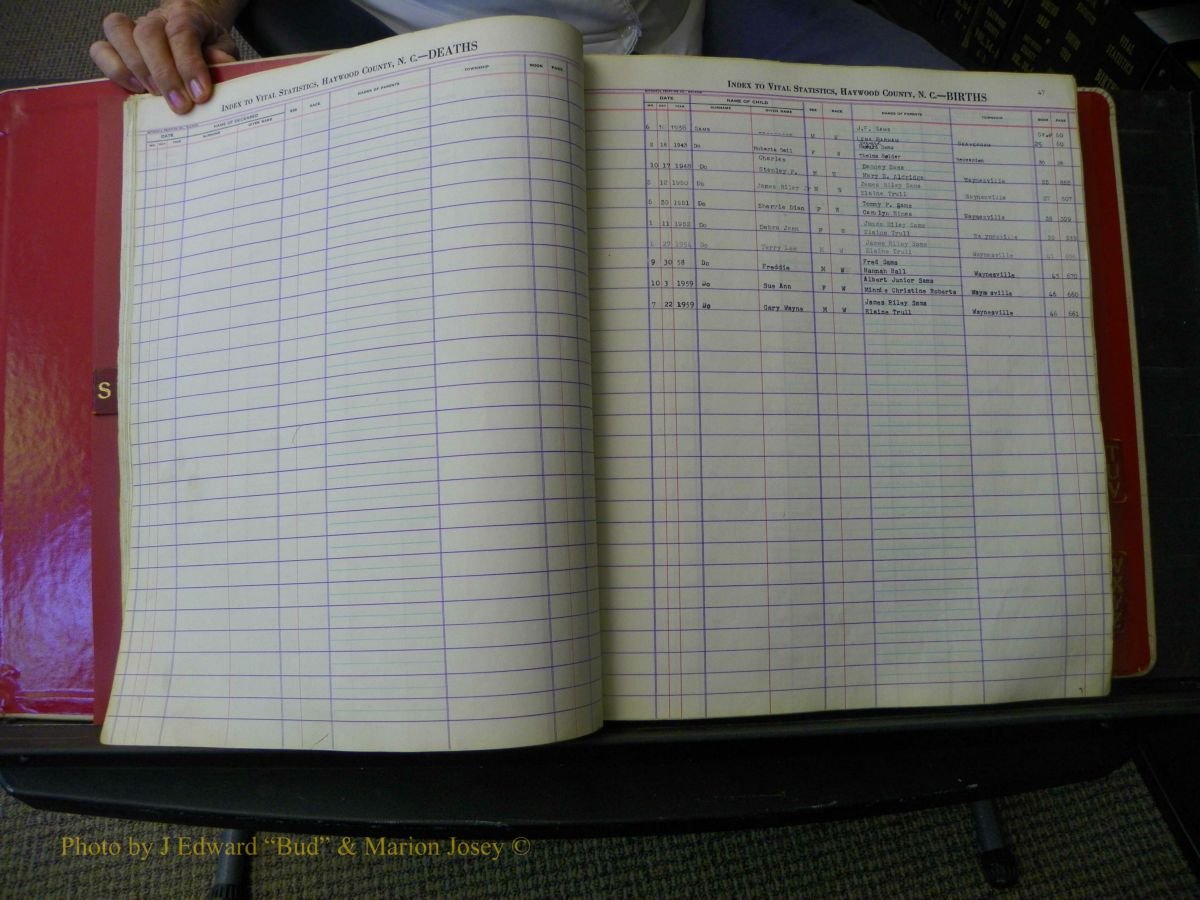 INDEX TO VITAL STATISTICS, HAYWOOD COUNTY, N. C.—DEATHS
DATE NAME OF DECEASED SEX RACE NAMES OF PARENTS TOWNSHIP BOOK PAGE
SURNAME GIVEN NAME
S
INDEX TO VITAL STATISTICS, HAYWOOD COUNTY, N. C.—BIRTHS 47
DATE NAME OF CHILD SEX RACE NAMES OF PARENTS TOWNSHIP BOOK PAGE
MO. DAY YEAR SURNAME GIVEN NAME
J.F. Sams
6 1938 Sams M W 60
Sams
2 16 1943 Do Roberta Gail F Thelma 25 60
Charles Denney Sams
10 17 1948 Do Stanley P. M Mary E. Aldridge
James Riley Sams
12 1950 Do James Riley Jr M Elaine Trull Waynesville
Tommy F. Sams
6 20 1951 Do Sherrie Dian F W Carolyn Hines Waynesville 27 507
James Riley Sams
1 11 1952 Do Debra Jean F Elaine Trull Waynesville 28 309
James Riley Sams
1 27 1954 Do Terry Lee M W Elaine Trull Waynesville
Fred Sams
9 30 58 Do Freddie M W Hannah Hall Waynesville 45 670
Albert Junior Sams
10 3 1959 Do Sue Ann F W Minnie Christine Roberts Waynesville 46 660
James Riley Sams
7 22 1959 Do Gary Wayne M W Elaine Trull Waynesville 46 661
TUV
VITAL STATISTICS
Photo by J Edward “Bud” & Marion Josey ©